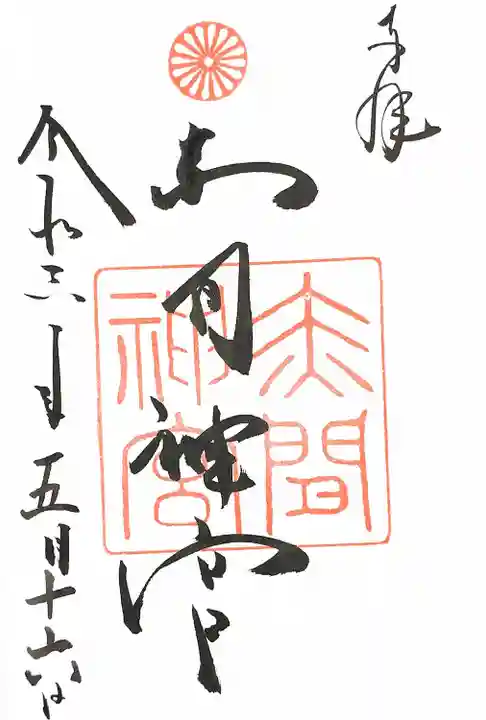 奉拝
赤間神宮
赤間
神宮
令和三年五月十六日